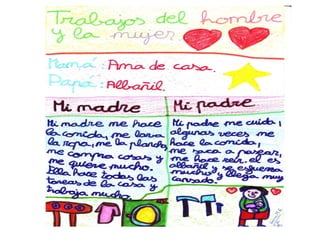 Trabajos del hombre
y la mujer
Mamá: Ama de casa.
Papá: Albañil.
Mi madre
Mi madre me hace
la comida, me lava
la ropa, me la plancha,
me compra cosas y
me quiere mucho.
Ella hace todas las
tareas de la casa y
trabaja mucho.
Mi padre
Mi padre me cuida,
algunas veces me
hace la comida,
me saca a pasear,
me hace reír. el es
albañil y se esfuerza
mucho y llega muy
cansado.